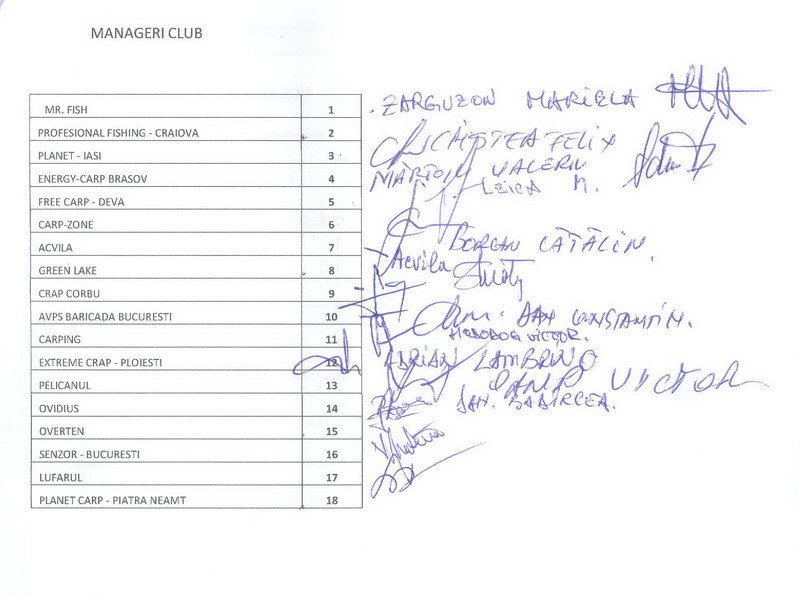 MANAGERI CLUB
MR. FISH 1 ZARGUZON MARIELA
PROFESIONAL FISHING - CRAIOVA 2 FELIX
PLANET - IASI 3 VALERIU
ENERGY-CARP BRASOV 4 M.
FREE CARP - DEVA 5
CARP-ZONE 6
ACVILA 7 CĂTĂLIN.
GREEN LAKE 8 Acvila
CRAP CORBU 9
AVPS BARICADA BUCURESTI 10 DAN CONSTANTIN.
CARPING 11 VICTOR.
EXTREME CRAP - PLOIESTI 12 ADRIAN LAMBRINO
PELICANUL 13 VICTOR
OVIDIUS 14 BABIRCEA.
OVERTEN 15
SENZOR - BUCURESTI 16
LUFARUL 17
PLANET CARP - PIATRA NEAMT 18